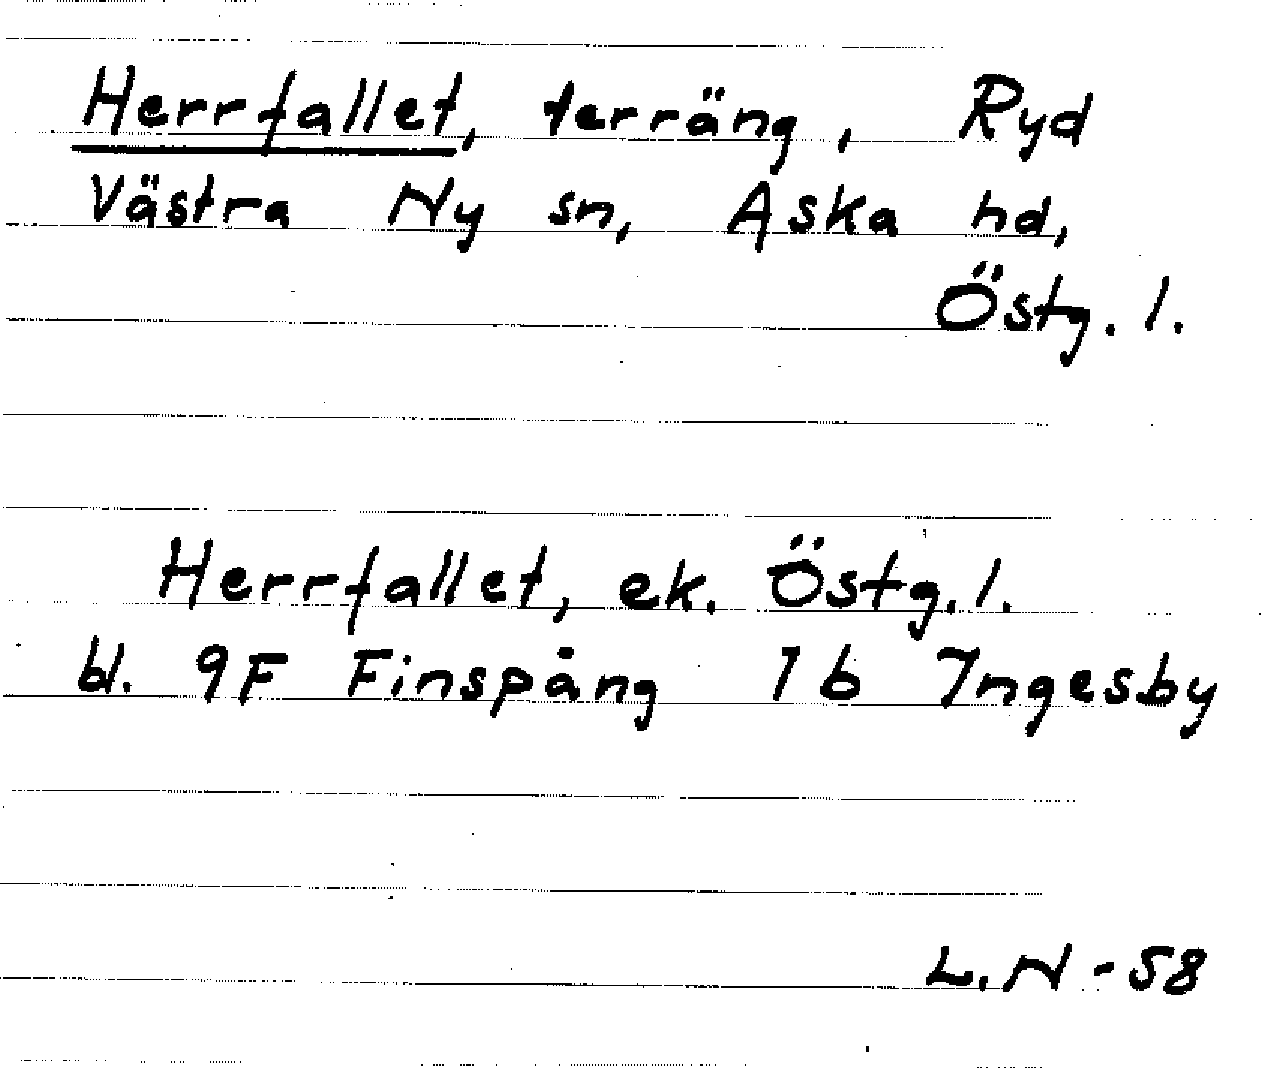 Herrfallet, terräng, Ryd
Västra Ny sn, Aska hd,
Östg. l.
Herrfallet, ek. Östg. l.
bl. 9F Finspång 1b Ingesby
L.N -58